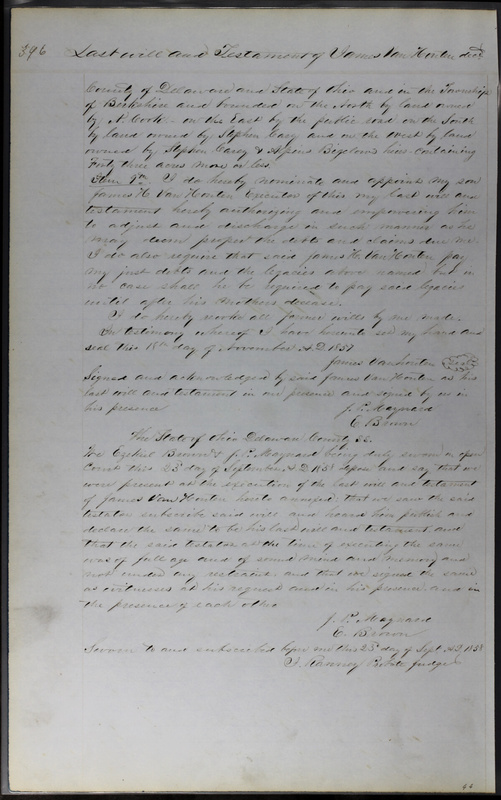 396 Last will and Testament of James Van Houten decd
County of Delaware and State of Ohio and in the Township
of Berkshire and bounded on the North by land owned
by N. Cook on the East by the public road on the South
by land owned by Stephen Cary and on the West by land
owned by Stephen Carey & Alpheus Bigelows heirs containing
Forty three acres more or less
Item 9th I do hereby nominate and appoint my son
James H. Van Houten Executor of this my last will and
testament hereby authorizing and empowering him
to adjust and discharge in such manner as he
may deem proper the debts and claims due me
I do also require that said James H. Van Houten pay
my just debts and the legacies above named but in
no case shall he be required to pay said legacies
until after his Mothers decease.
I do hereby revoke all former wills by me made.
In testimony whereof I have hereunto set my hand and
seal this 18th day of November A.D. 1857
James Van Houten Seal
Signed and acknowledged by said James Van Houten as his
last will and testament in our presence and signed by us in
his presence
J. P. Maynard
E. Brown
The State of Ohio Delaware County SS.
We Ezekiel Brown & J. P. Maynard being duly sworn in open
Court this 23d day of September A.D. 1858 depose and say that we
were present at the execution of the last will and testament
of James Van Houten hereto annexed that we saw the said
testator subscribe said will and heard him publish and
declare the same to be his last will and testament and
that the said testator at the time of executing the same
was of full age and of sound mind and memory and
not under any restraint and that we signed the same
as witnesses at his request and in his presence and in
the presence of each other
J. P. Maynard
E. Brown
Sworn to and subscribed before me this 23d day of Sept. A.D. 1858
Ranney Probate judge